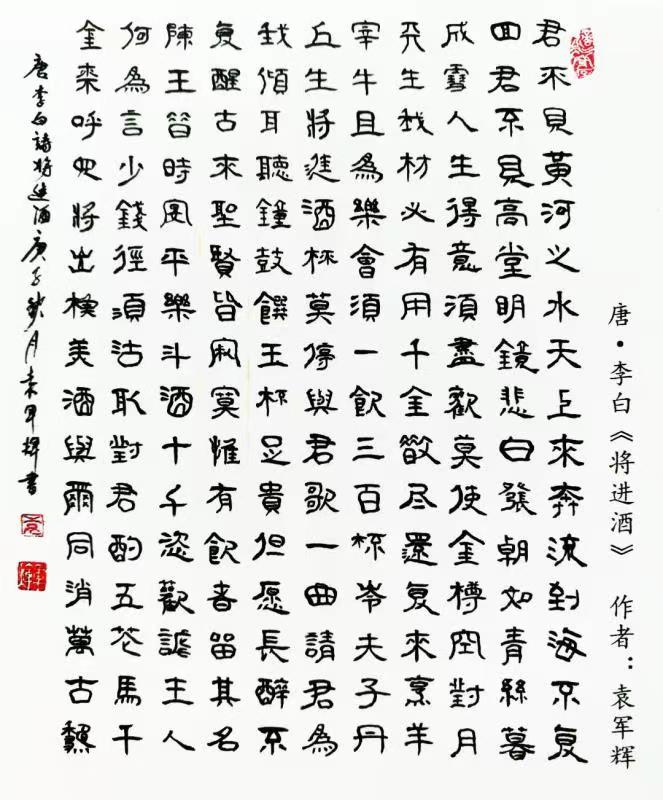 君不見黃河之水天上來奔流到海不复
回君不見高堂明鏡悲白發朝如青絲暮
成雪人生得意須盡歡莫使金樽空對月
天生我材必有用千金散尽還复來烹羊
宰牛且為樂會須一飲三百杯岑夫子丹
丘生將進酒杯莫停與君歌一曲請君為
我傾耳聽鐘鼓饌玉杯足貴但愿長醉不
复醒古來聖賢皆寂寞惟有飲者留其名
陳王昔時宴平樂斗酒十千恣歡謔主人
何為言少錢徑須沽取對君酌五花馬千
金裘呼兒將出換美酒與爾同消萬古愁
唐李白詩將進酒庚子秋月袁军輝書
唐·李白《将进酒》 作者：袁军辉